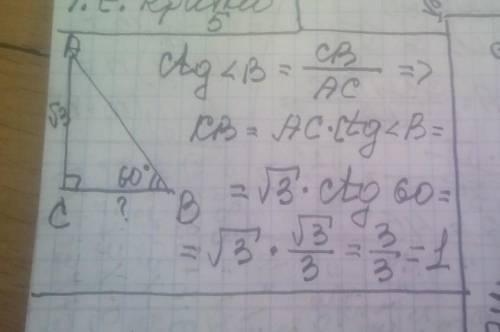 5
A
√3
60°
C
?
B
Ctg <B = CB/AC =>
CB = AC · Ctg <B =
= √3 · Ctg 60 =
= √3 · √3/3 = 3/3 = 1